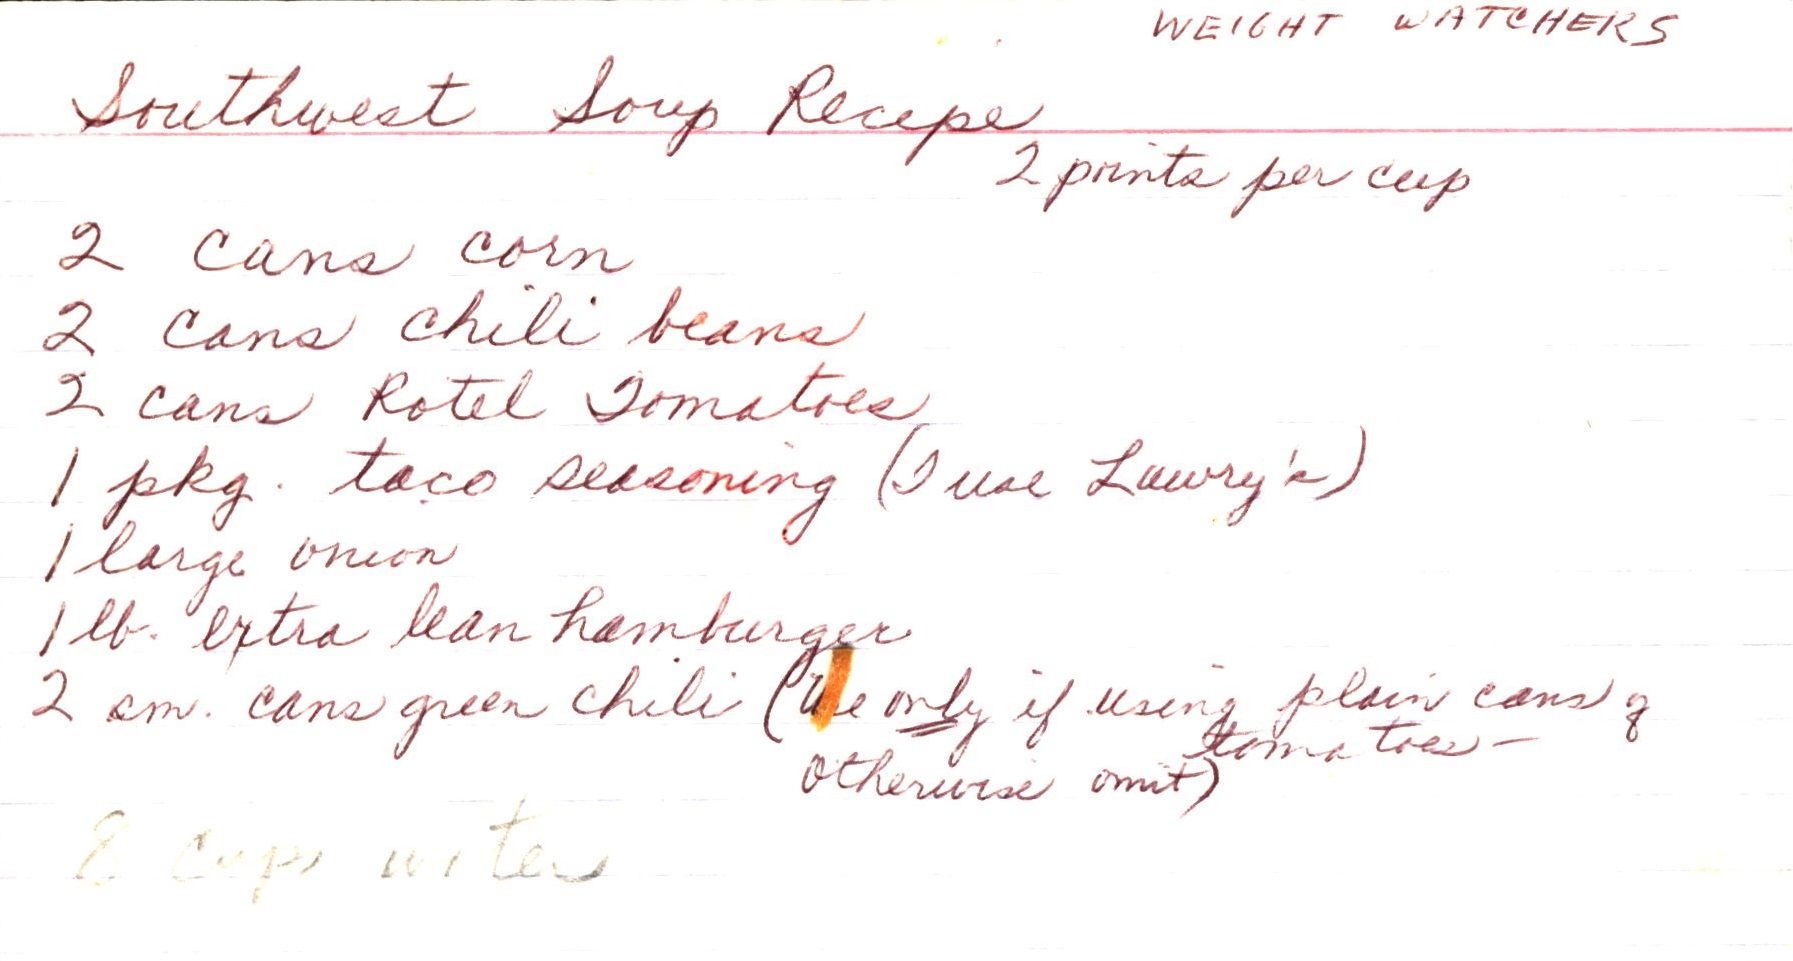 WEIGHT WATCHERS
Southwest Soup Recipe
2 points per cup
2 cans corn
2 cans chili beans
2 cans Rotel Tomatoes
1 pkg. taco seasoning (I use Lawry's)
1 large onion
1 lb. extra lean hamburger
2 sm. cans green chili (Use only if using plain cans of
tomatoes -
otherwise omit)
cups water